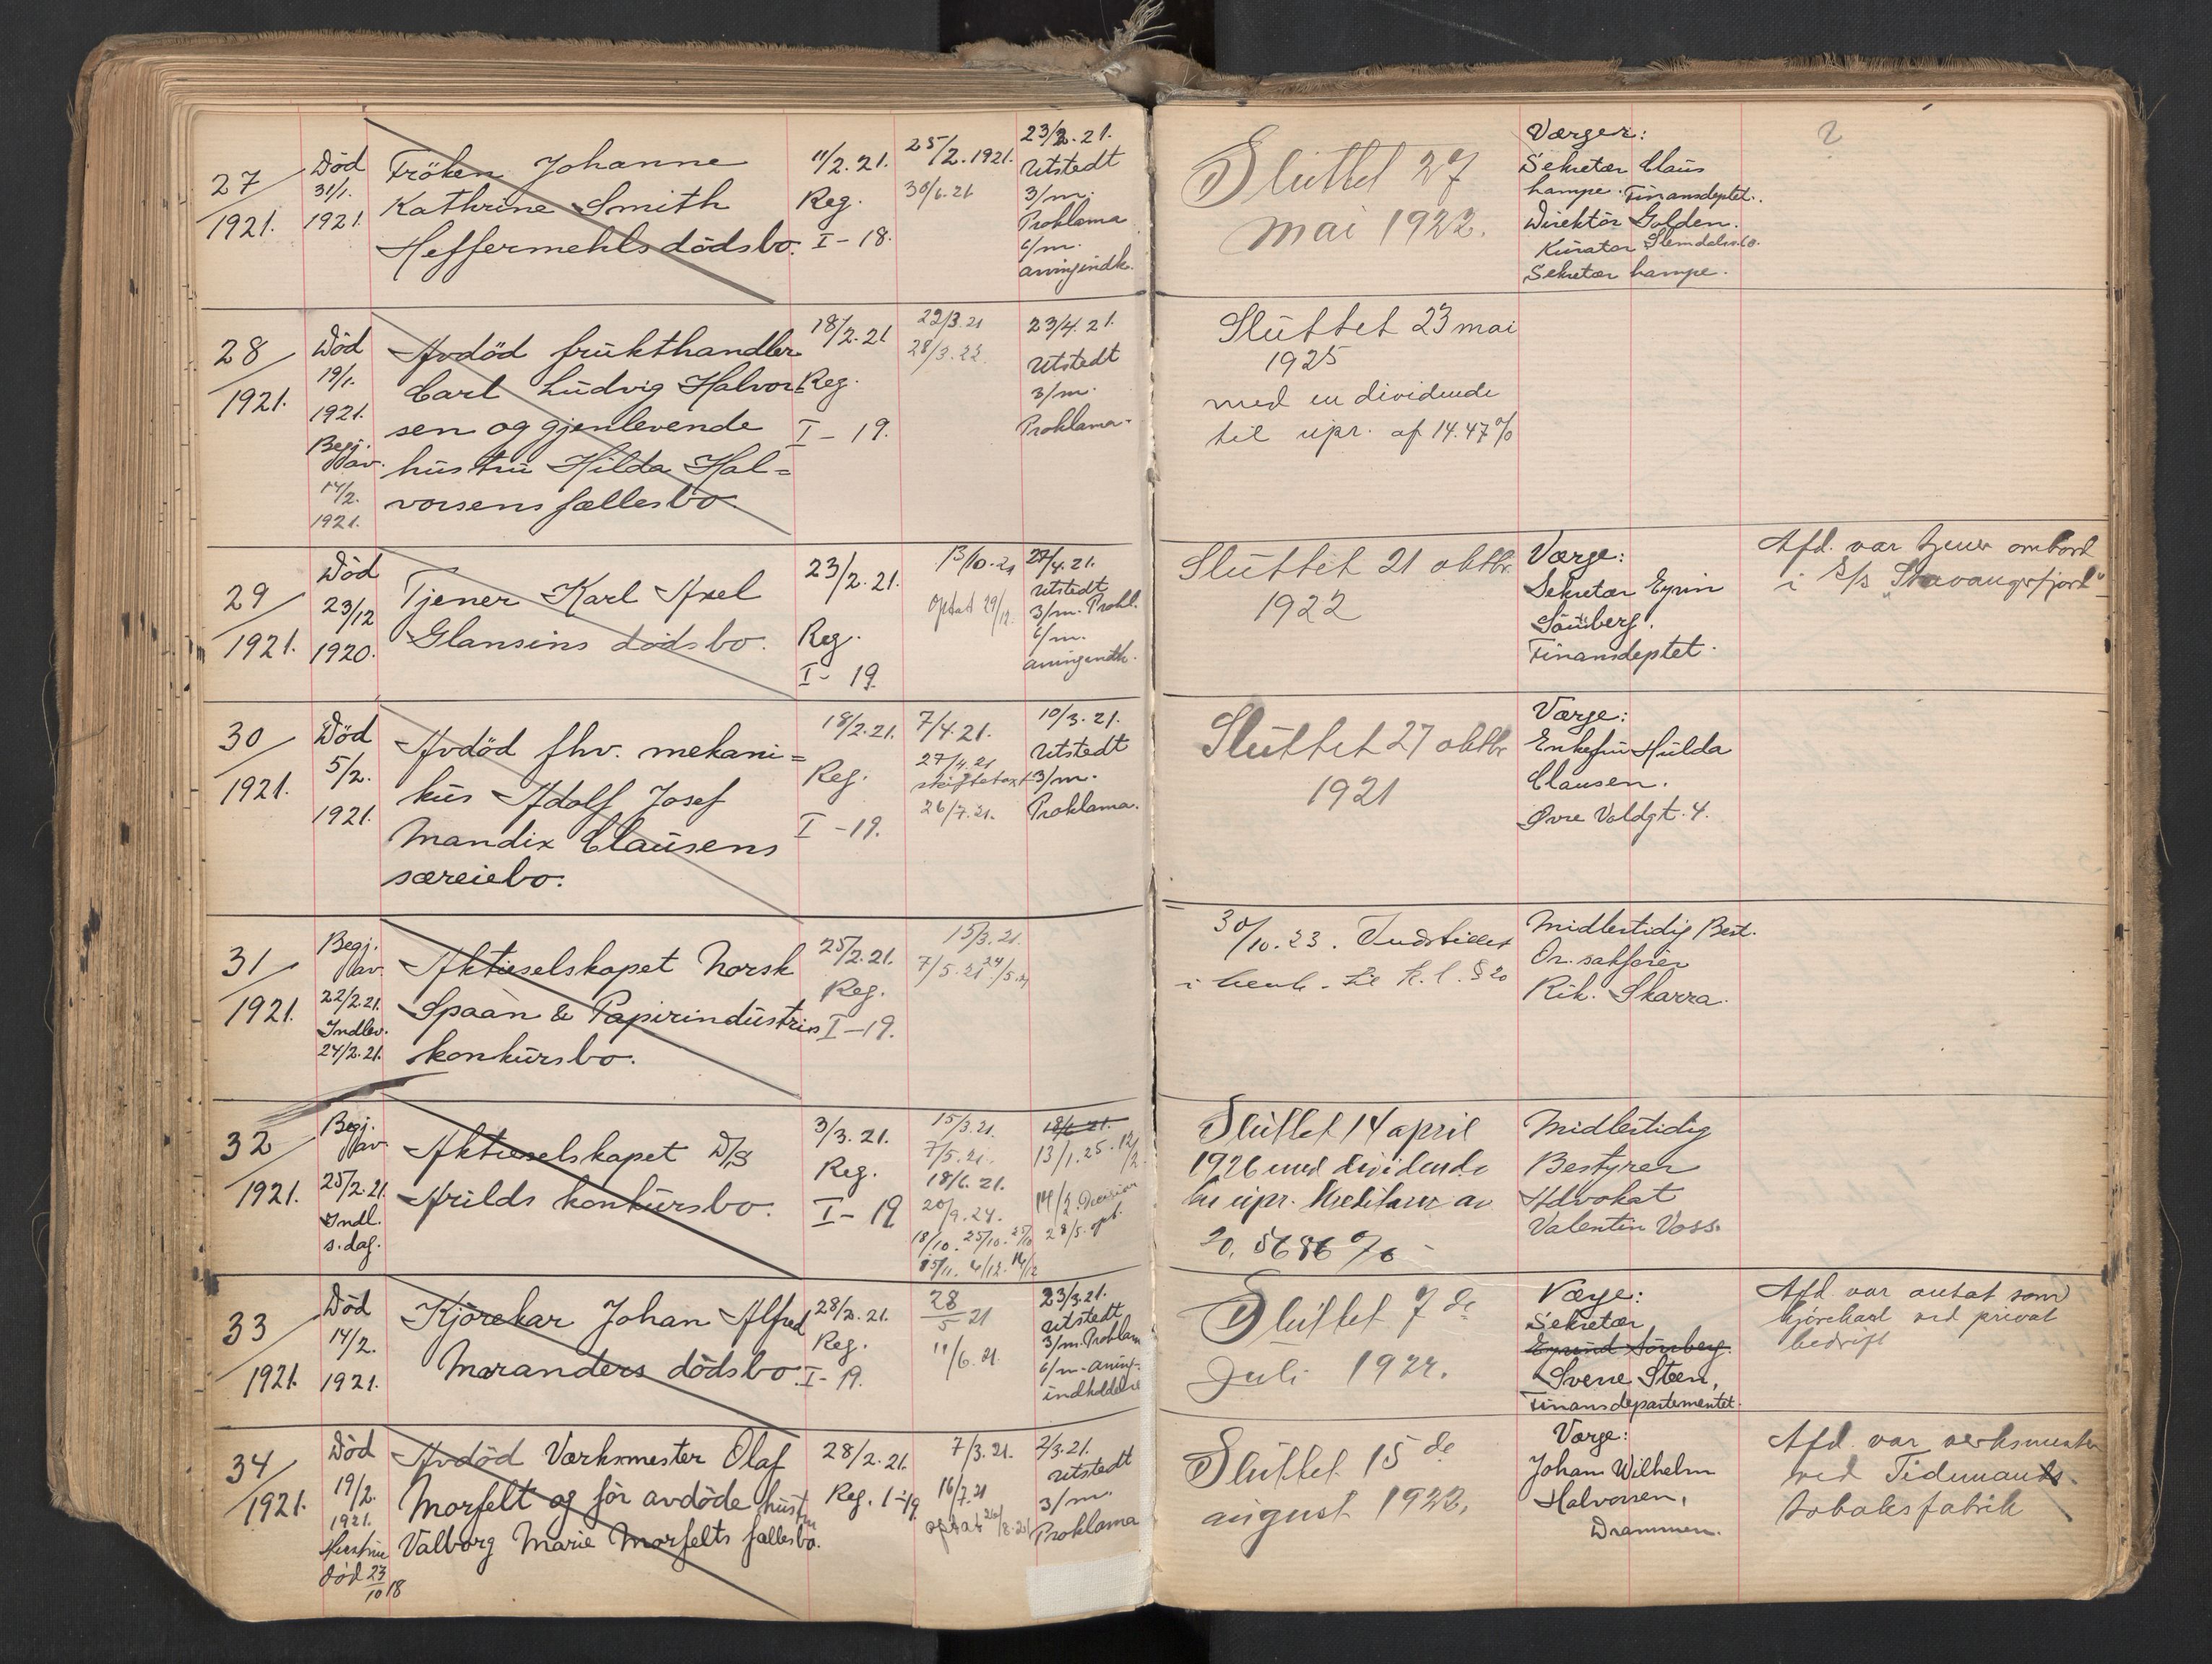 27/1921.
Död
31/1.
1921.
Fröken Johanne
Kathrine Smith
Heffermehls dödsbo.
11/2. 21.
Reg.
I - 18.
25/2. 1921.
30/6. 21
23/2. 21.
Utstedt
3/m.
Proklama
6/m.
Sluttet 27
mai 1922.
Værger:
Sekretær Claus
Lampe. Finansdeptet.
Direktör Golden.
Kurator
Sekretær Lampe.
?
28/1921.
Död
19/1.
1921.
Begj.
av.
14/2.
1921.
Avdöd frukthandler
Carl Ludvig Halvor-
sen og gjenlevende
hustru Hilda Hal=
vorsens fællesbo.
18/2. 21
Reg.
I - 19.
22/3. 21
28/3. 22.
23/4. 21.
Utstedt
3/m.
Proklama.
Sluttet 23 mai
1925
med en dividende
til upr. af 14.47%
29/1921.
Död
23/12
1920.
Tjener Karl Axel
Glansins dödsbo.
23/2. 21.
Reg
I - 19.
13/10. 21
optat 29/12.
27/4. 21.
Utstedt
3/m. Prokl.
6/m.
Sluttet 21 oktbr.
1922
Værge:
Sekretær
Finansdeptet.
Afd. var tjener ombord
i S/S "Stavangerfjord"
30/1921.
Död
5/2.
1921.
Avdöd fhv. mekani=
kus Adolf Josef
Mandix Clausens
særeiebo.
18/2. 21.
Reg.
I - 19.
7/4. 21.
27/4. 21
skiftetaxt
26/7. 21.
10/3. 21.
Utstedt
3/m.
Proklama.
Sluttet 27 oktbr
1921
Værge:
Enkefru Hulda
Clausen.
Øvre Voldgt. 4.
31/1921.
Begj.
av.
22/2. 21.
Indlev.
24/2. 21.
Aktieselskapet Norsk
Spaan & Papirindustries
konkursbo.
25/2. 21.
Reg.
I - 19.
15/3. 21.
7/5. 21. 24/5. 21
30/10. 23. Indstillet
i henh. til k. l. § 20
Midlertidig Best.
Or. sakfører
Rik. Skarra.
32/1921.
Begj.
av.
25/2. 21.
Indl.
s. dag.
Aktieselskapet D/S
Arilds konkursbo.
3/3. 21.
Reg.
I - 19
15/3. 21.
7/5. 21.
18/6. 21.
20/9. 24.
18/10. 25/10. 27/10
15/11. 4/12. 16/12
18/6 21.
13/1. 25. 12/2.
14/2 Decision
28/5. opt.
Sluttet 14 april
1926 med dividende
til upr. kreditorer av
20, 5686 %
Midlertidig
Bestyrer
Advokat
Valentin Voss.
33/1921.
Död
14/2.
1921.
Kjörekar Johan Alfred
Maranders dödsbo.
28/2. 21.
Reg.
I - 19.
28/5 21
11/6. 21.
23/3. 21.
Utstedt
3/m. Proklam
6/m. arving-
indkaldelse
Sluttet 7 de
Juli 1922.
Værge:
Sekretær
Sverre Steen,
Finansdepartementet.
Afd var antat som
kjörekarl ved privat
bedrift
34/1921.
Död
19/2.
1921.
Hustru
död 23/10 18
Avdöd Værksmester Olaf
Morfelt og för avdöde hustru
Valborg Marie Morfelts fællesbo.
28/2. 21.
Reg. I - 19.
7/3. 21.
16/7. 21
optat 26/8. 21
2/3. 21.
Utstedt
3/m.
Proklama
Sluttet 15 de
august 1922,
Værge:
Johan Wilhelm
Halvorsen,
Drammen.
Afd. var verksmester
ved Tidemands
tobaksfabrik